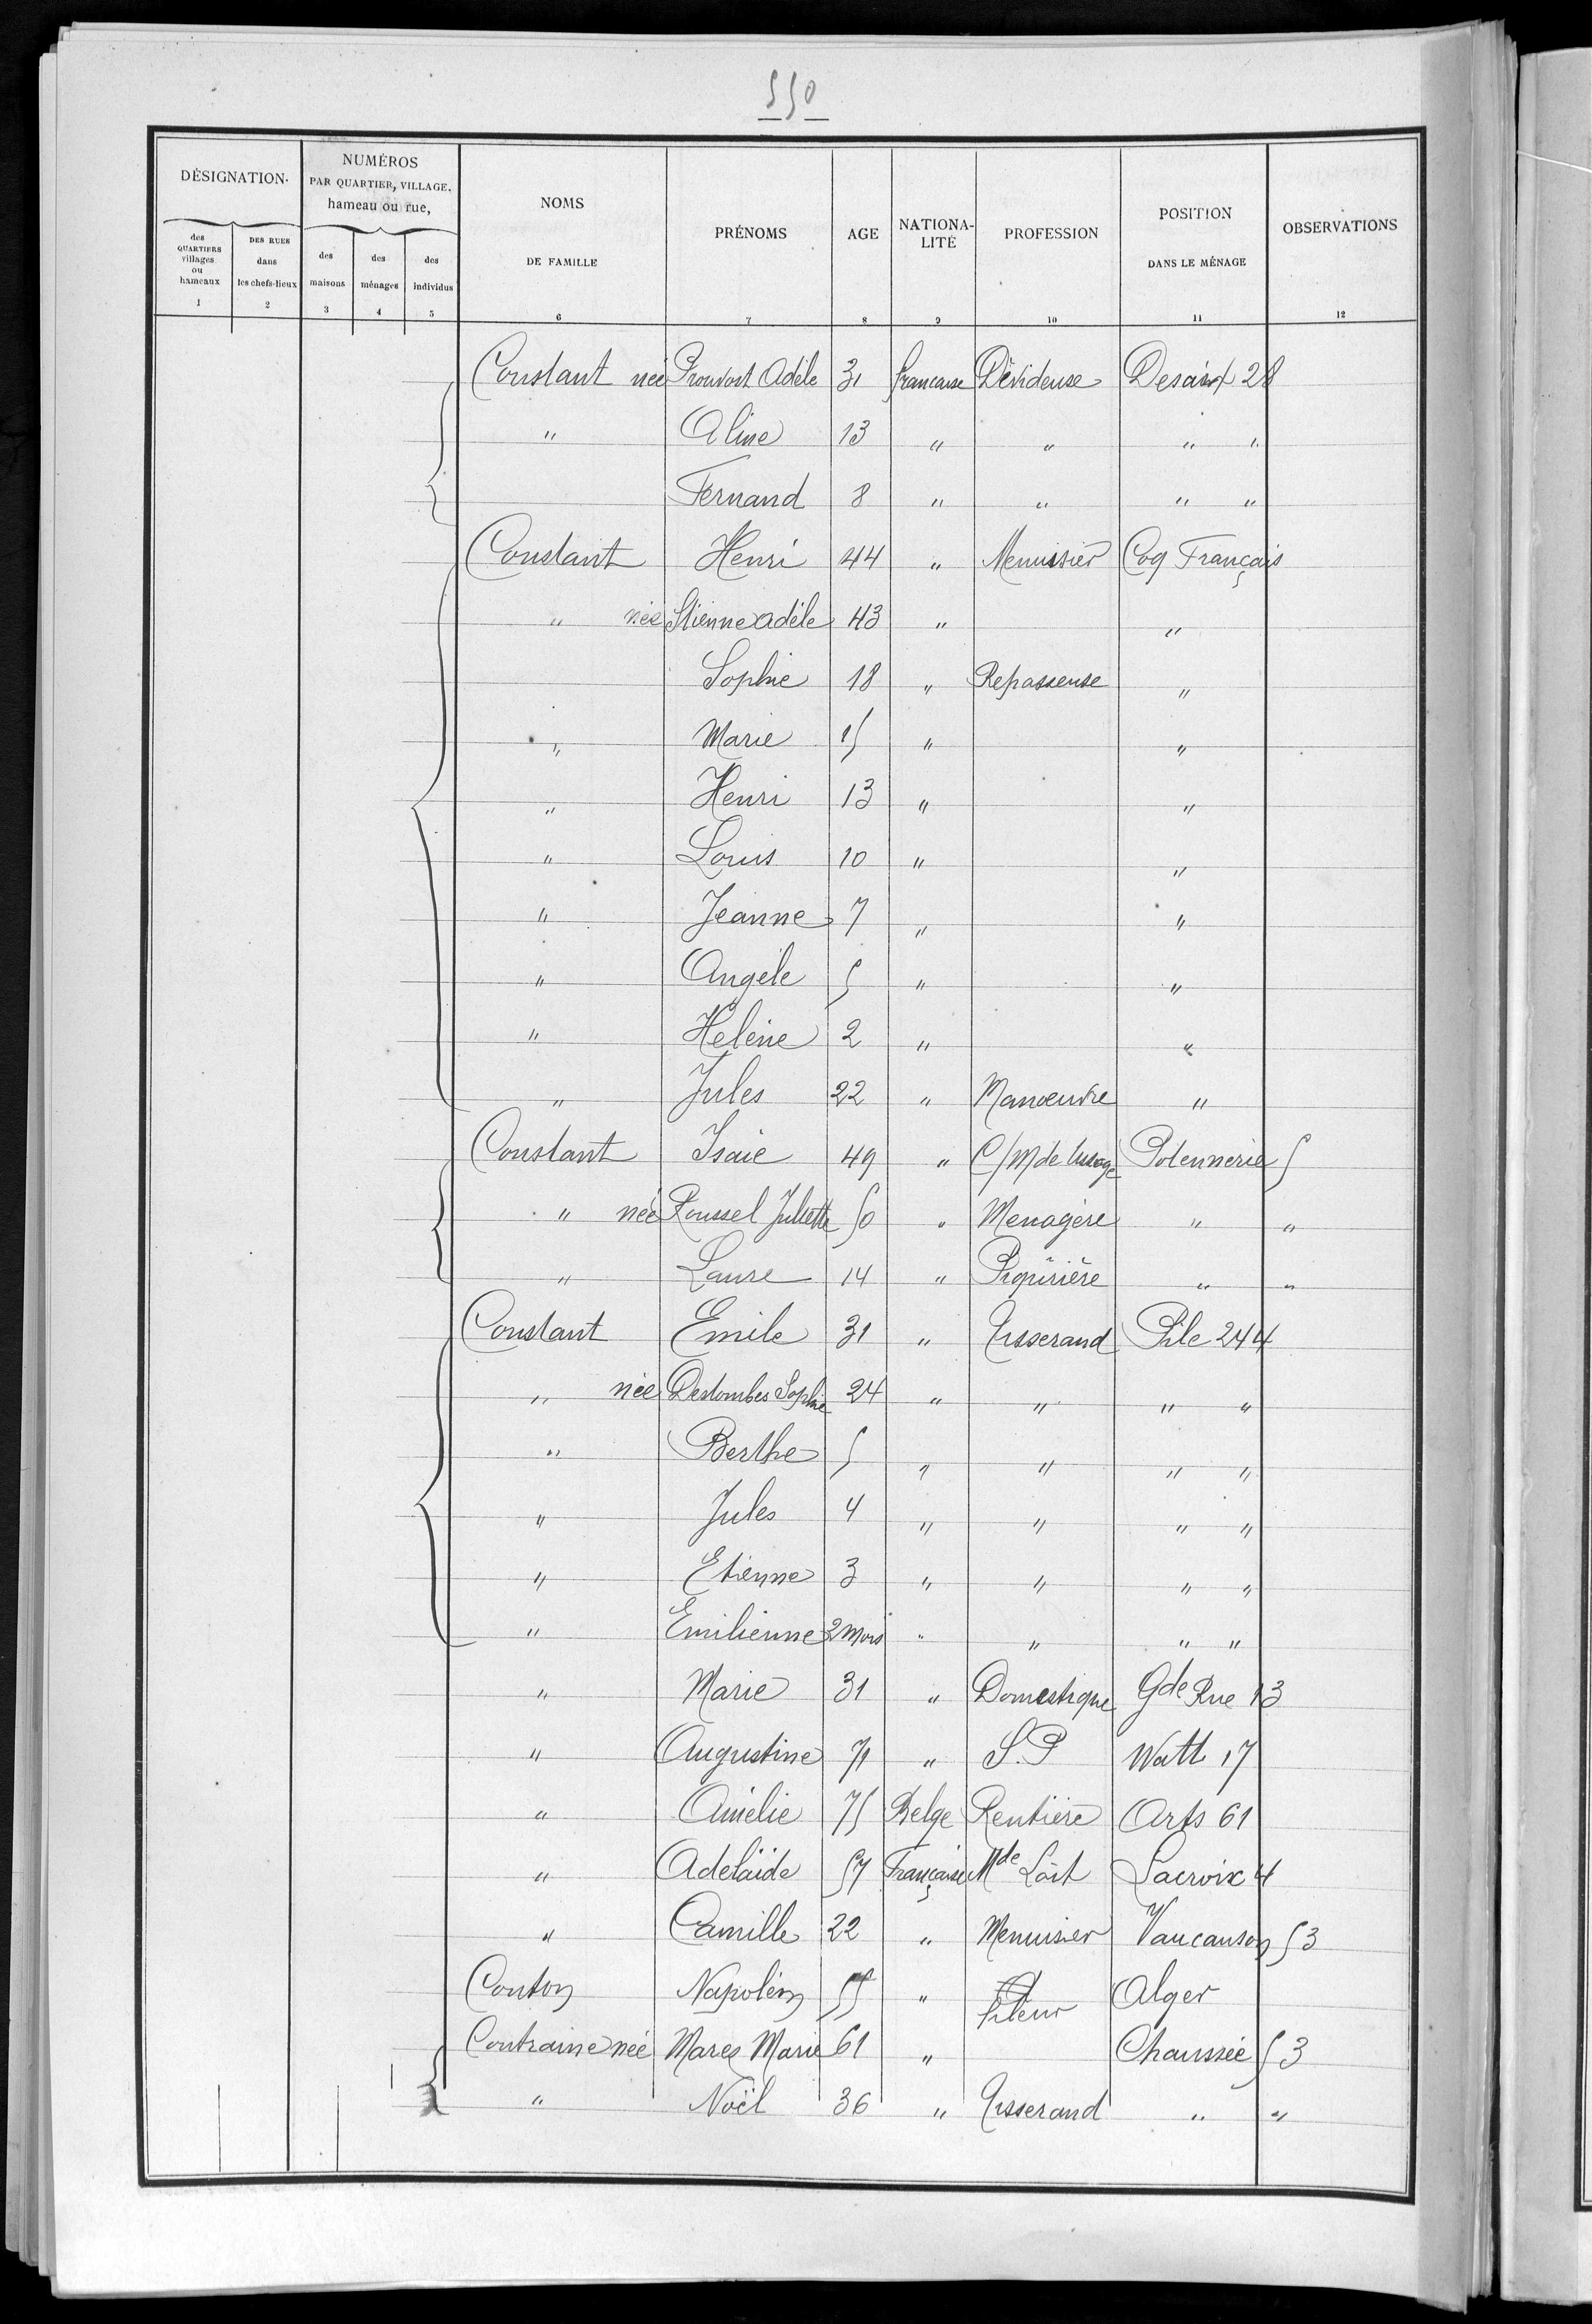 550
DÉSIGNATION.
NUMÉROS PAR QUARTIER, VILLAGE, hameau ou rue,
NOMS DE FAMILLE
PRÉNOMS
AGE
NATIONA-LITÉ
PROFESSION
POSITION DANS LE MÉNAGE
OBSERVATIONS
des QUARTIERS villages ou hameaux
DES RUES dans les chefs-lieux
des maisons
des ménages
des individus
1 2 3 4 5 6 7 8 9 10 11 12
Constant née Prouvost Adèle 31 française Dévideuse Desaix 28
" Aline 13 " " " "
Fernand 8 " " " "
Constant Henri 44 " Menuisier Coq Français
" née Stienne Adèle 43 " "
Sophie 18 " Repasseuse "
" Marie 15 " "
" Henri 13 " "
" Louis 10 " "
" Jeanne 7 " "
" Angèle 5 " "
" Helène 2 " "
" Jules 22 " Manœuvre "
Constant Isaïe 49 " C/M de tissage Potennerie 5
" née Roussel Juliette 50 " Menagère " "
" Laure 14 " Piqûrière " "
Constant Emile 31 " Tisserand Pile 244
" née Destombes Sophie 24 " " " "
" Berthe 5 " " " "
" Jules 4 " " " "
" Etienne 3 " " " "
" Emilienne 2 mois " " " "
" Marie 31 " Domestique Gde Rue 13
" Augustine 71 " S.P Watt 17
" Amélie 75 Belge Rentière Arts 61
" Adelaïde 57 Française Mde Lait Lacroix 4
" Camille 22 " Menuisier Vaucanson 53
Conton Napoléon 55 " fileur Alger
Contraine née Marez Marie 61 " Chaussée 53
" Noël 36 " Tisserand " "